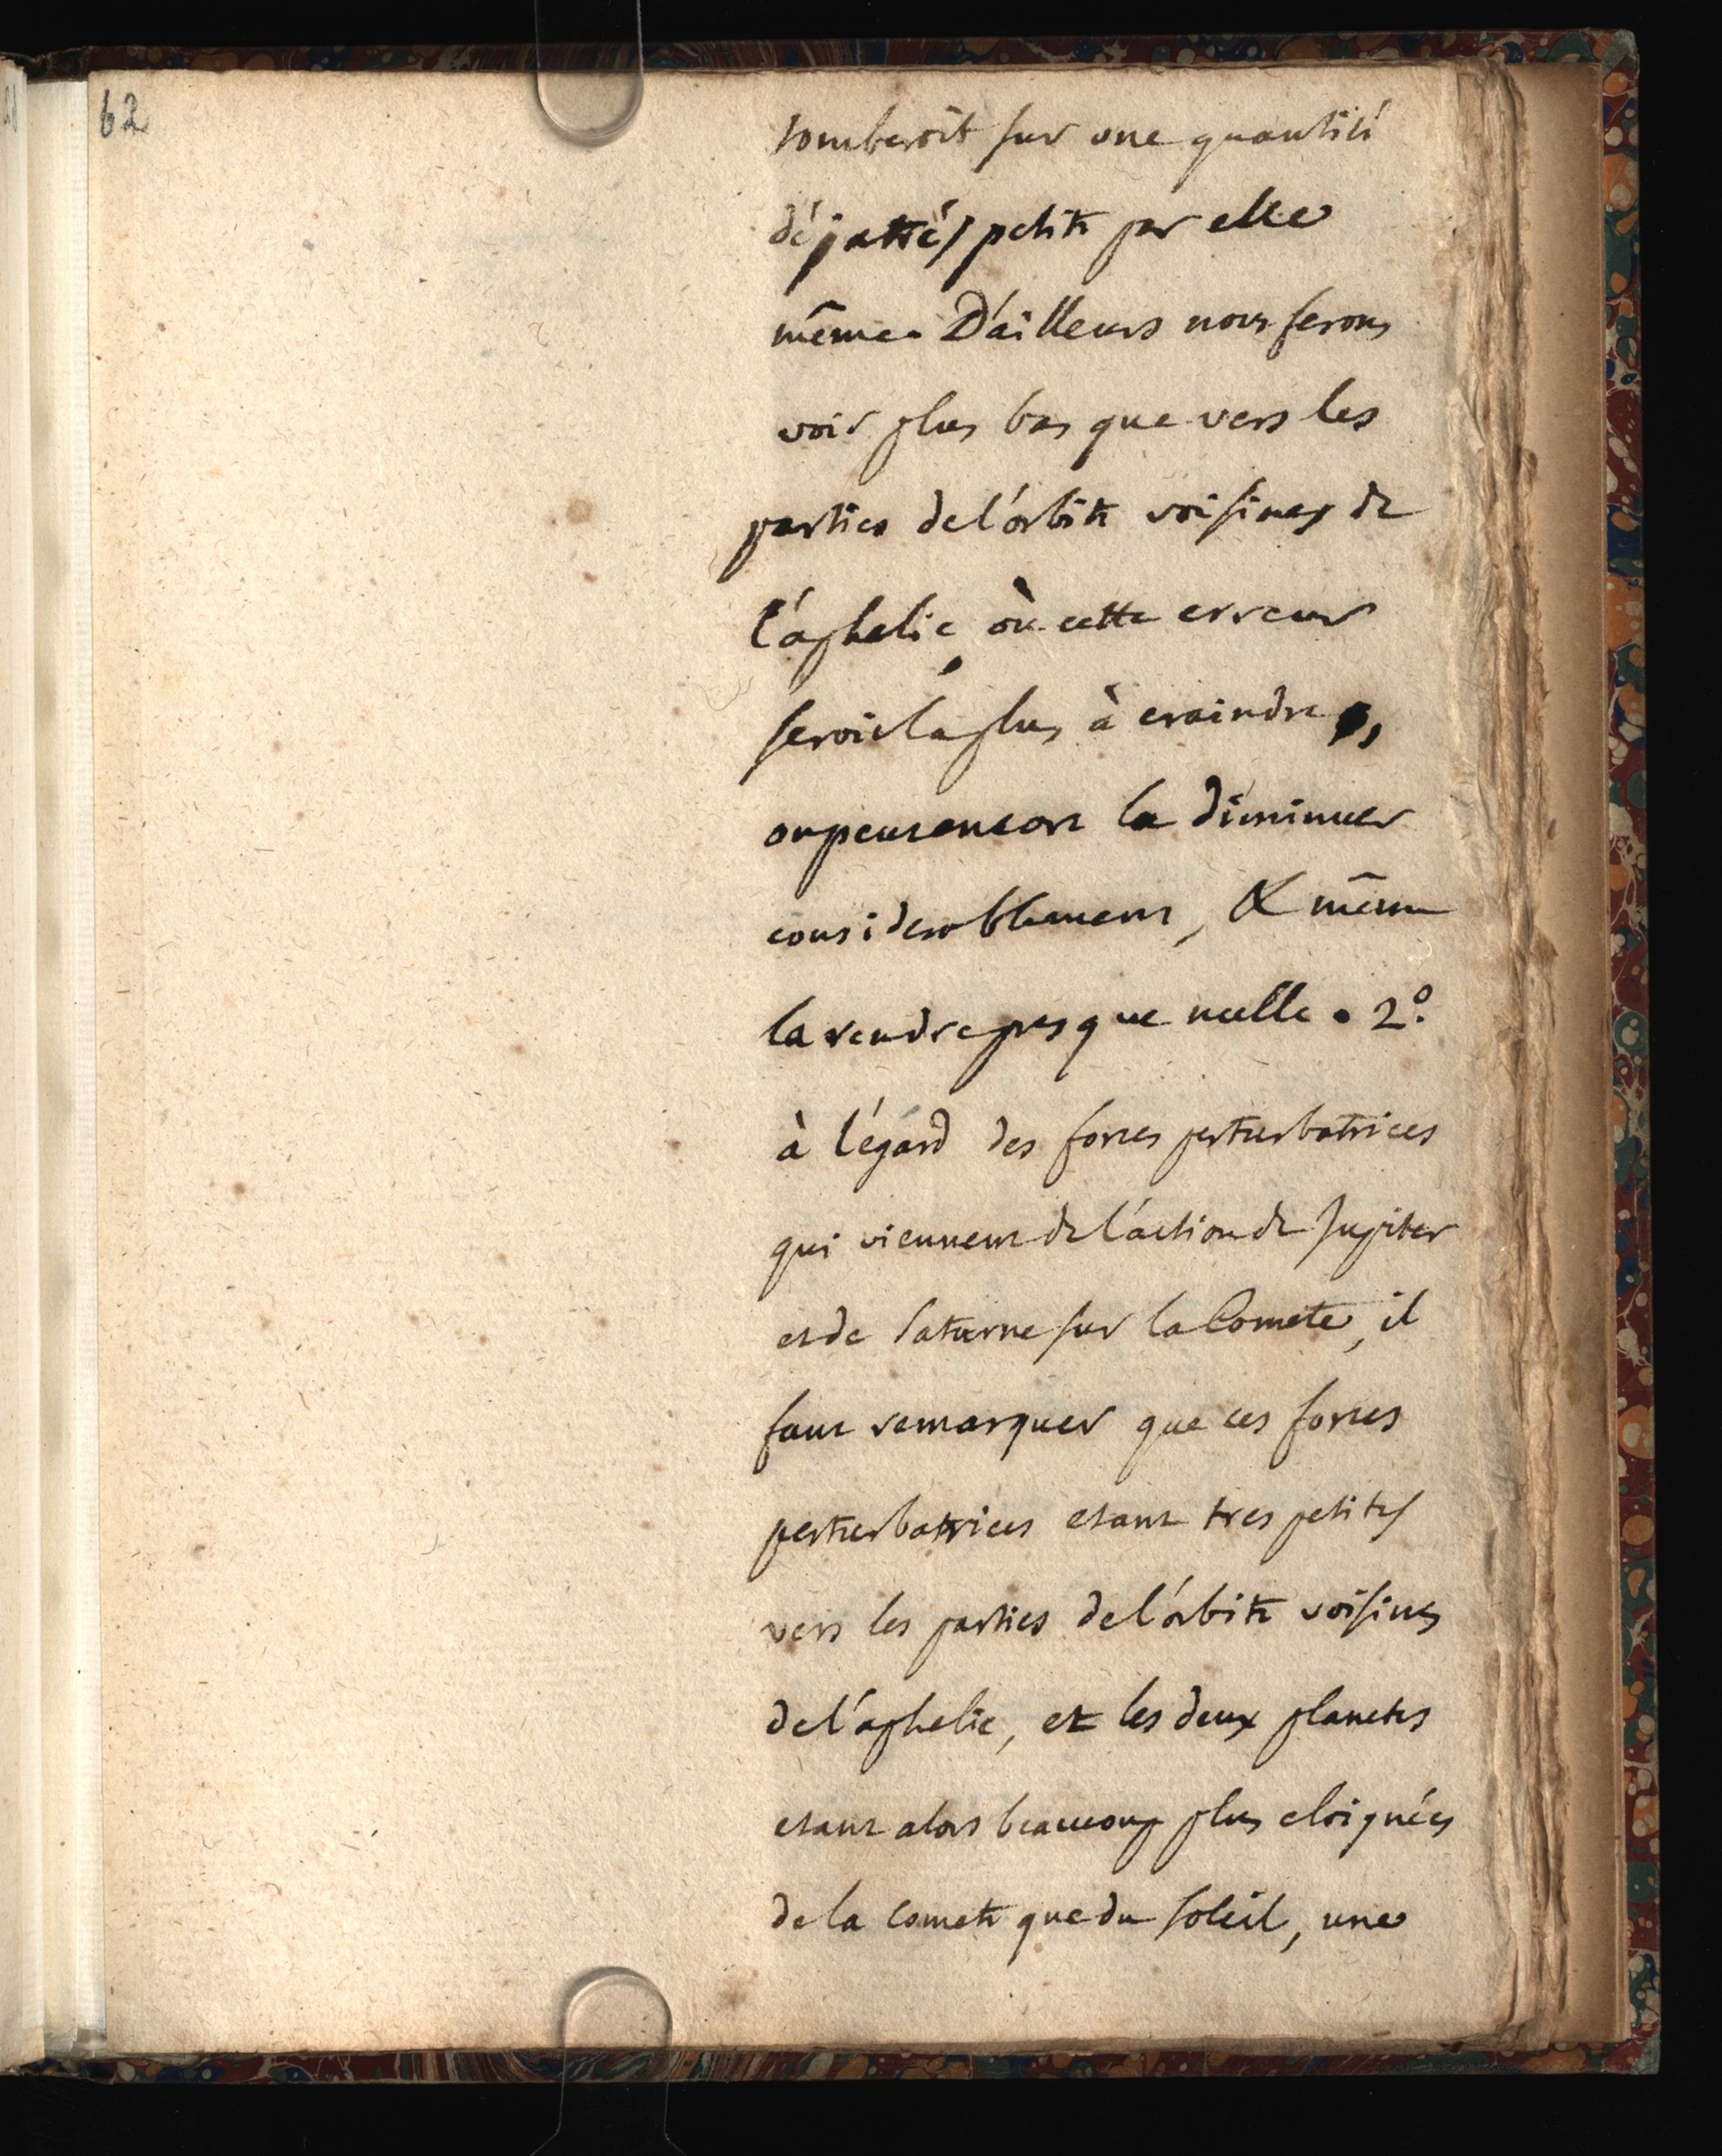 62
tomberoit sur une quantité
déja très petite par elle
même. D'ailleurs nous ferons
voir plus bas que vers les
parties de l'orbite voisines de
l'aphelie, où cette erreur
seroit la plus à craindre,
on peut encore la diminuer
considerablement, & même
la rendre presque nulle. 2º.
à l'égard des forces perturbatrices
qui viennent de l'action de Jupiter
et de Saturne sur la Comete, il
faut remarquer que ces forces
perturbatrices etant tres petites
vers les parties de l'orbite voisines
de l'aphelie, et les deux planetes
etant alors beaucoup plus eloignées
de la comete que du soleil, une